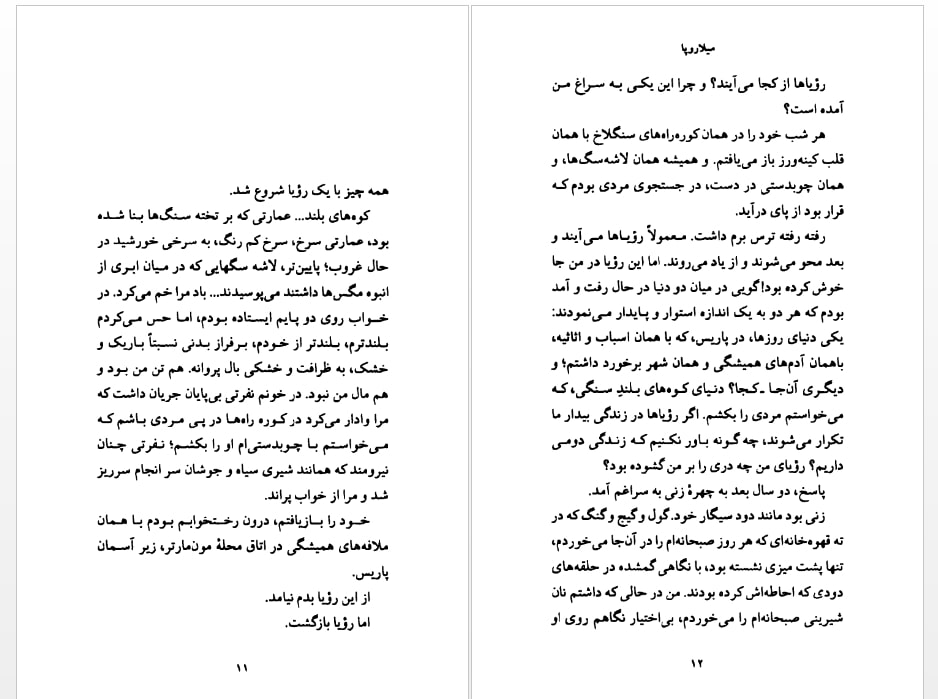 همه چیز با یک رؤیا شروع شد.
کوه‌های بلند... عمارتی که بر تخته سنگ‌ها بنا شده
بود، عمارتی سرخ، سرخ کم رنگ، به سرخی خورشید در
حال غروب؛ پایین‌تر، لاشه سگهایی که در میان ابری از
انبوه مگس‌ها داشتند می‌پوسیدند... باد مرا خم می‌کرد. در
خواب روی دو پایم ایستاده بودم، اما حس می‌کردم
بلندترم، بلندتر از خودم، برفراز بدنی نسبتاً باریک و
خشک، به ظرافت و خشکی بال پروانه. هم تن من بود و
هم مال من نبود. در خونم نفرتی بی‌پایان جریان داشت که
مرا وادار می‌کرد در کوره راه‌ها در پی مردی باشم که
می‌خواستم با چوبدستی‌ام او را بکشم؛ نفرتی چنان
نیرومند که همانند شیری سیاه و جوشان سر انجام سرریز
شد و مرا از خواب پراند.
خود را بازیافتم، درون رختخوابم بودم با همان
ملافه‌های همیشگی در اتاق محلهٔ مون‌مارتر، زیر آسمان
پاریس.
از این رؤیا بدم نیامد.
اما رؤیا بازگشت.
۱۱
میلارویا
رؤیاها از کجا می‌آیند؟ و چرا این یکی به سراغ من
آمده است؟
هر شب خود را در همان کوره‌راه‌های سنگلاخ با همان
قلب کینه‌ورز باز می‌یافتم. و همیشه همان لاشه‌سگ‌ها، و
همان چوبدستی در دست، در جستجوی مردی بودم که
قرار بود از پای درآید.
رفته رفته ترس برم داشت. معمولاً رؤیاها می‌آیند و
بعد محو می‌شوند و از یاد می‌روند. اما این رؤیا در من جا
خوش کرده بود! گویی در میان دو دنیا در حال رفت و آمد
بودم که هر دو به یک اندازه استوار و پایدار می‌نمودند:
یکی دنیای روزها، در پاریس، که با همان اسباب و اثاثیه،
باهمان آدم‌های همیشگی و همان شهر برخورد داشتم؛ و
دیگری آن‌جا ـ کجا؟ دنیای کوه‌های بلندِ سنگی، که
می‌خواستم مردی را بکشم. اگر رؤیاها در زندگی بیدار ما
تکرار می‌شوند، چه گونه باور نکنیم که زندگی دومی
داریم؟ رؤیای من چه دری را بر من گشوده بود؟
پاسخ، دو سال بعد به چهرهٔ زنی به سراغم آمد.
زنی بود مانند دود سیگار خود. گول و گیج و گنگ که در
ته قهوه‌خانه‌ای که هر روز صبحانه‌ام را در آن‌جا می‌خوردم،
تنها پشت میزی نشسته بود، با نگاهی گمشده در حلقه‌های
دودی که احاطه‌اش کرده بودند. من در حالی که داشتم نان
شیرینی صبحانه‌ام را می‌خوردم، بی‌اختیار نگاهم روی او
۱۲